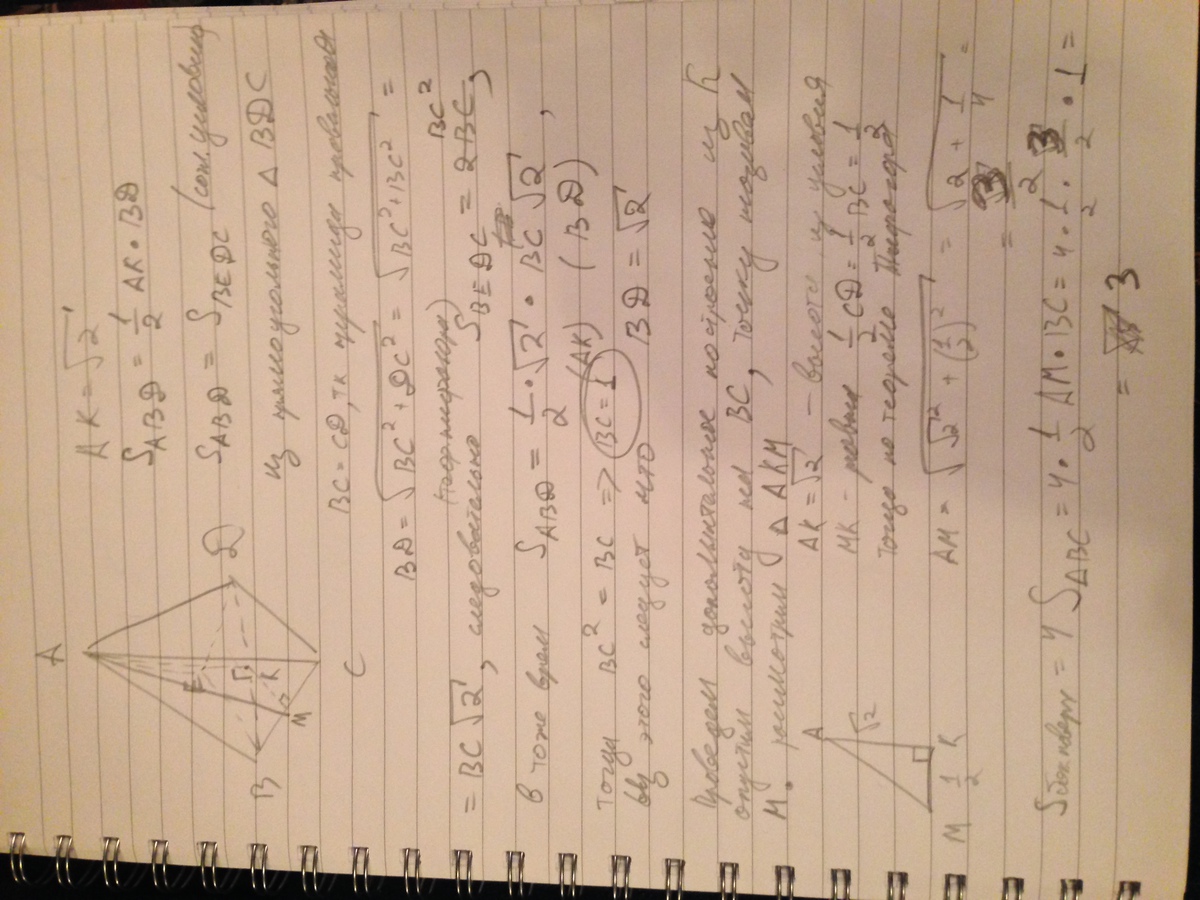 A
B
E
D
K
M
C
AK = √2
S ABD = 1/2 AK · BD
S ABD = S BEDC (
из прямоугольного Δ BDC
BC = CD, тк пирамида правильная
BD = √(BC² + DC²) = √(BC² + BC²) =
(теор пифагора)
= BC√2, следовательно S BEDC = 2BC BC²,
в тоже время S ABD = 1/2 · √2 · BC √2,
(AK) (BD)
Тогда BC² = BC => BC = 1
из этого следует что BD = √2
Проведем дополнительное построение из K
опустим высоту на BC, точку назовем
M. рассмотрим Δ AKM
AK = √2 – высота, из условия
MK – равный 1/2 CD = 1/2 BC = 1/2
тогда по теореме Пифагора
A
√2
M 1/2 K
AM = √(√2² + (1/2)²) = √(2 + 1/4) =
= 3/2
S бок поверх = 4 S ABC = 4 · 1/2 AM · BC = 4 · 1/2 · 3/2 · 1 =
= 3